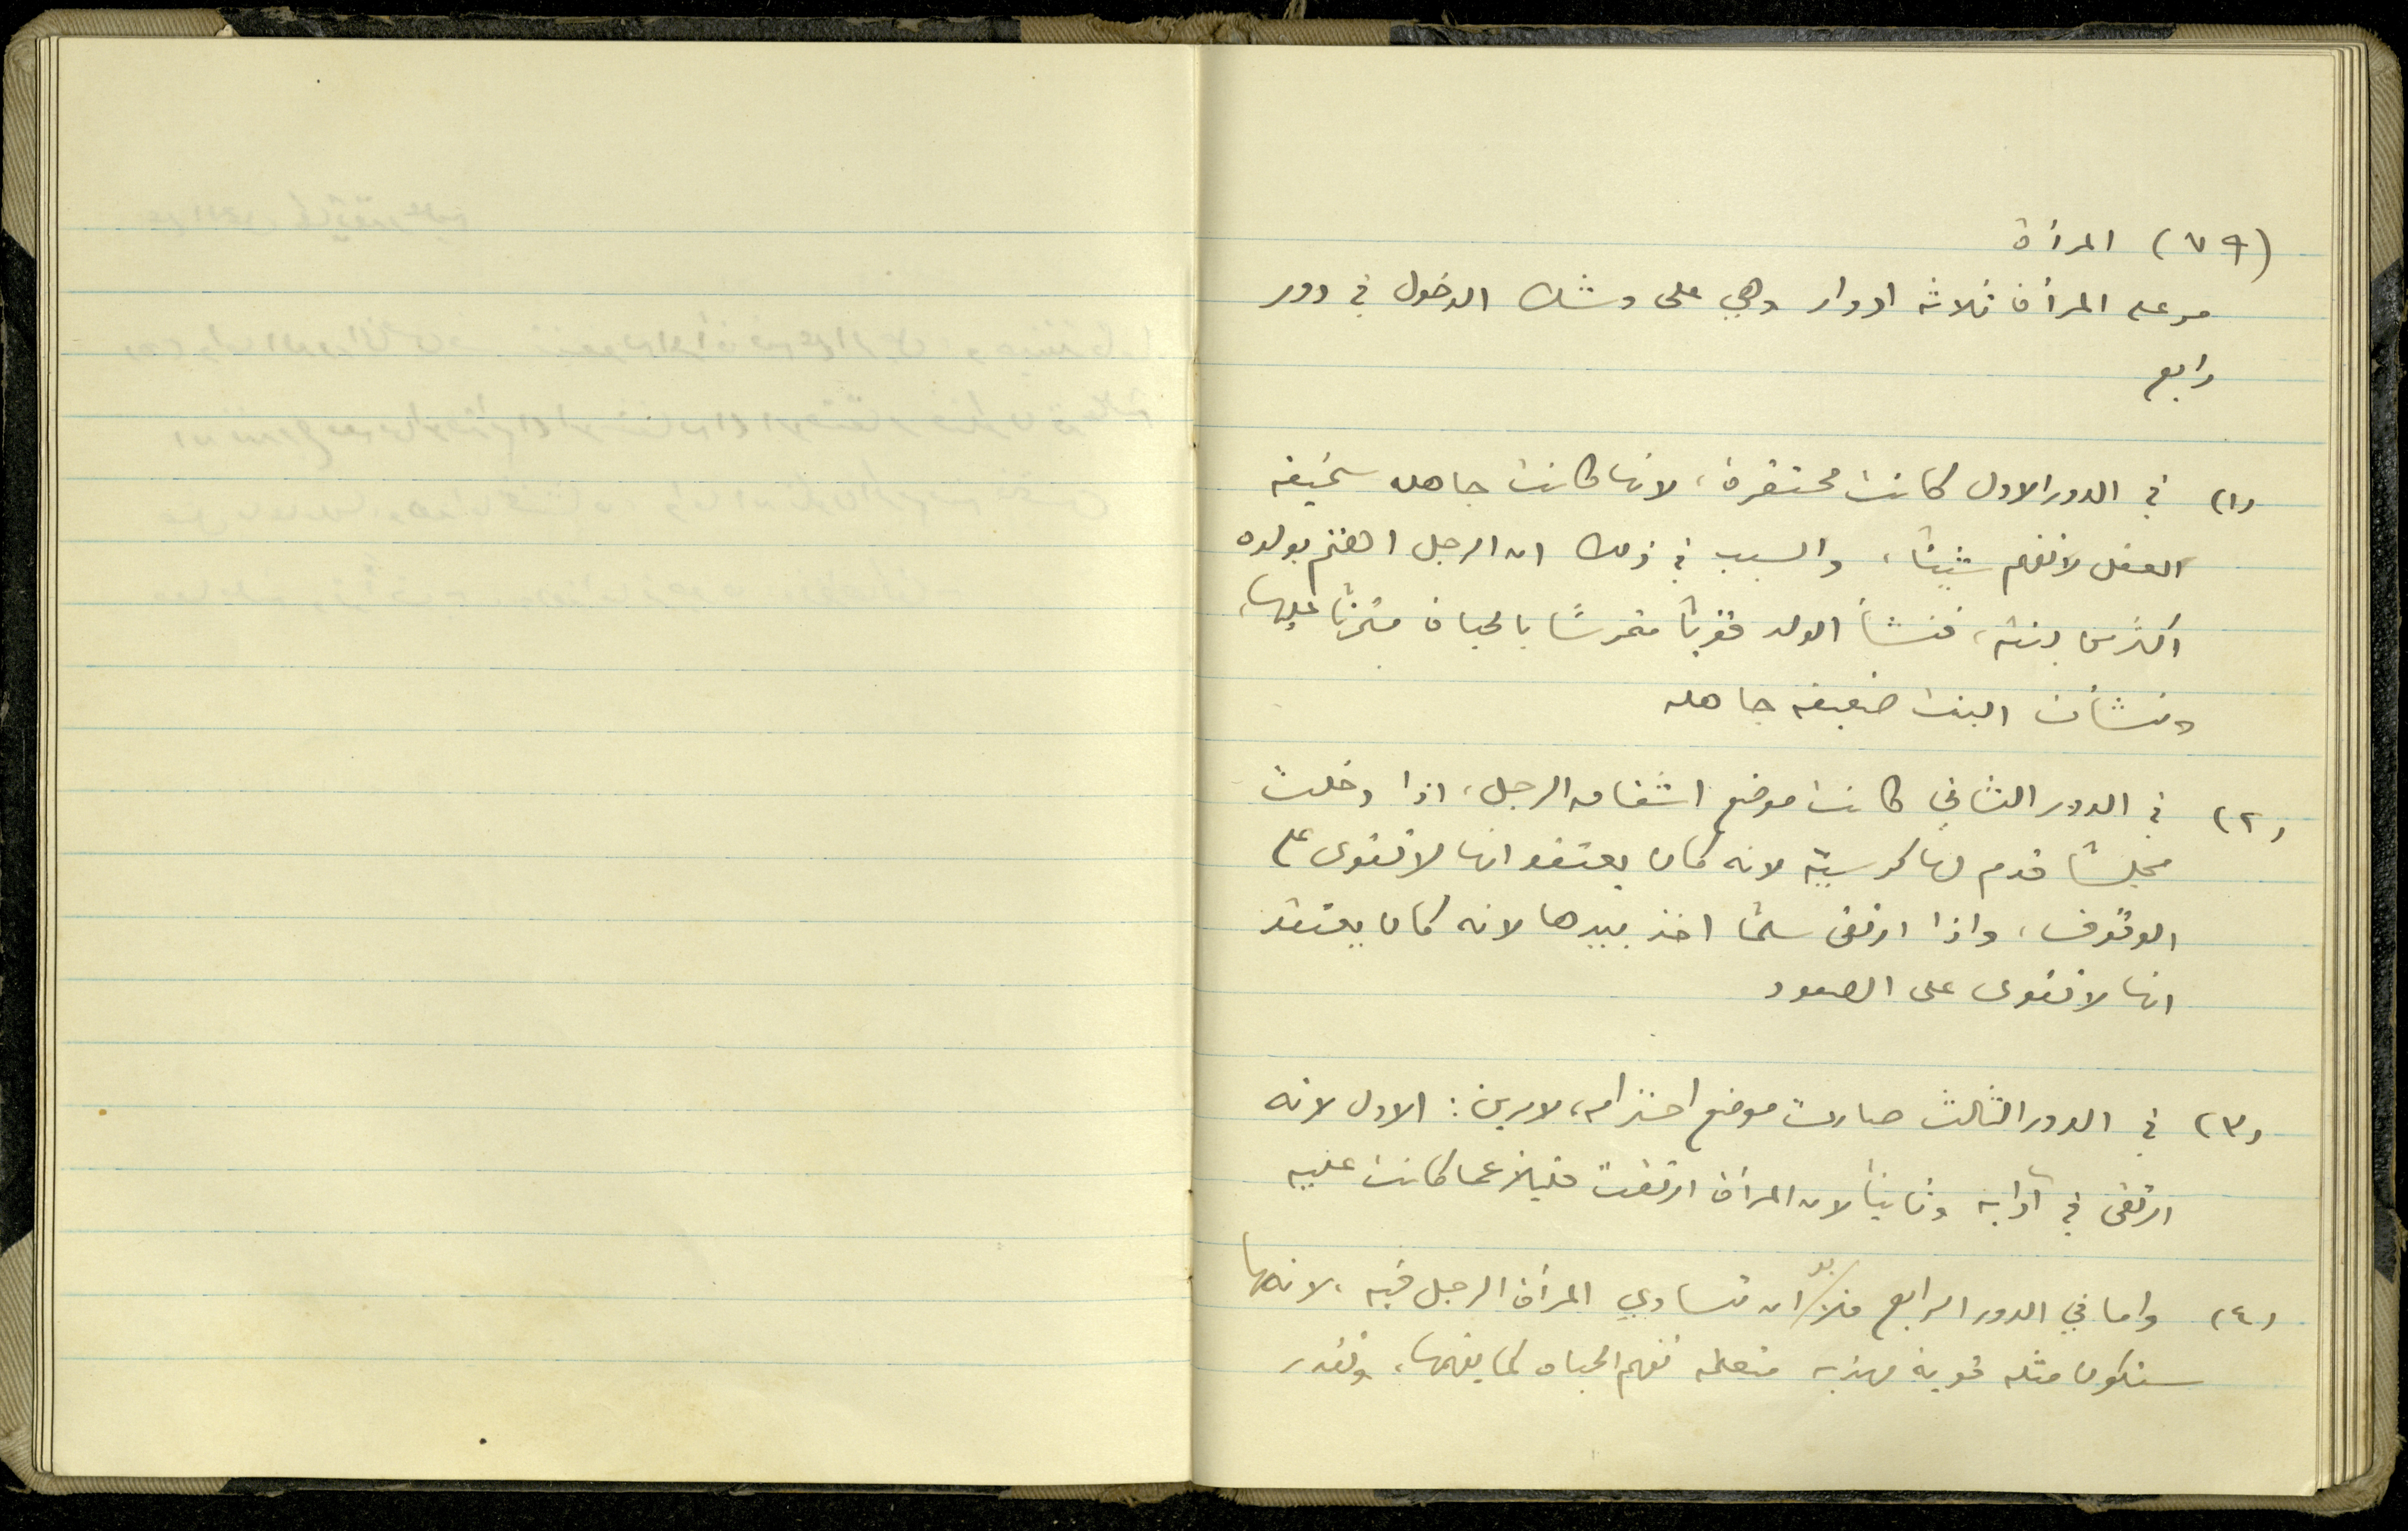 (٧٩) المرأة
مر على المرأة ثلاثة ادوار وهي على وشك الدخول في دور
رابع
(١) في الدور الاول كانت محتقرة، لانها كانت جاهلة سخيفة
العقل لا تفهم شيئاً، والسبب في ذلك ان الرجل اهتم بولده
اكثر من بنته، فنشأ الولد قوياً متمرساً بالحياة متمرناً عليها،
ونشأت البنت ضعيفة جاهلة
(٢) في الدور الثاني كانت موضع اشفاق الرجل، اذا دخلت
مجلساً قدم لها كرسيّه لانه كان يعتقد انها لا تقوى على
الوقوف، واذا ارتقى سلماً اخذ بيدها لانه كان يعتقد
انها لا تقوى على الصعود
(٣) في الدور الثالث صارت موضع احترامه، لامرين: الاول لانه
ارتقى في آدابه وثانياً لان المرأة ارتقت قليلاً عما كانت عليه
(٤) واما في الدور الرابع فلا بد ان تساوي المرأة الرجل فيه، لانها
ستكون مثله قوية مهذبة متعلمة تفهم الحياة كما يفهمها، وتقدر